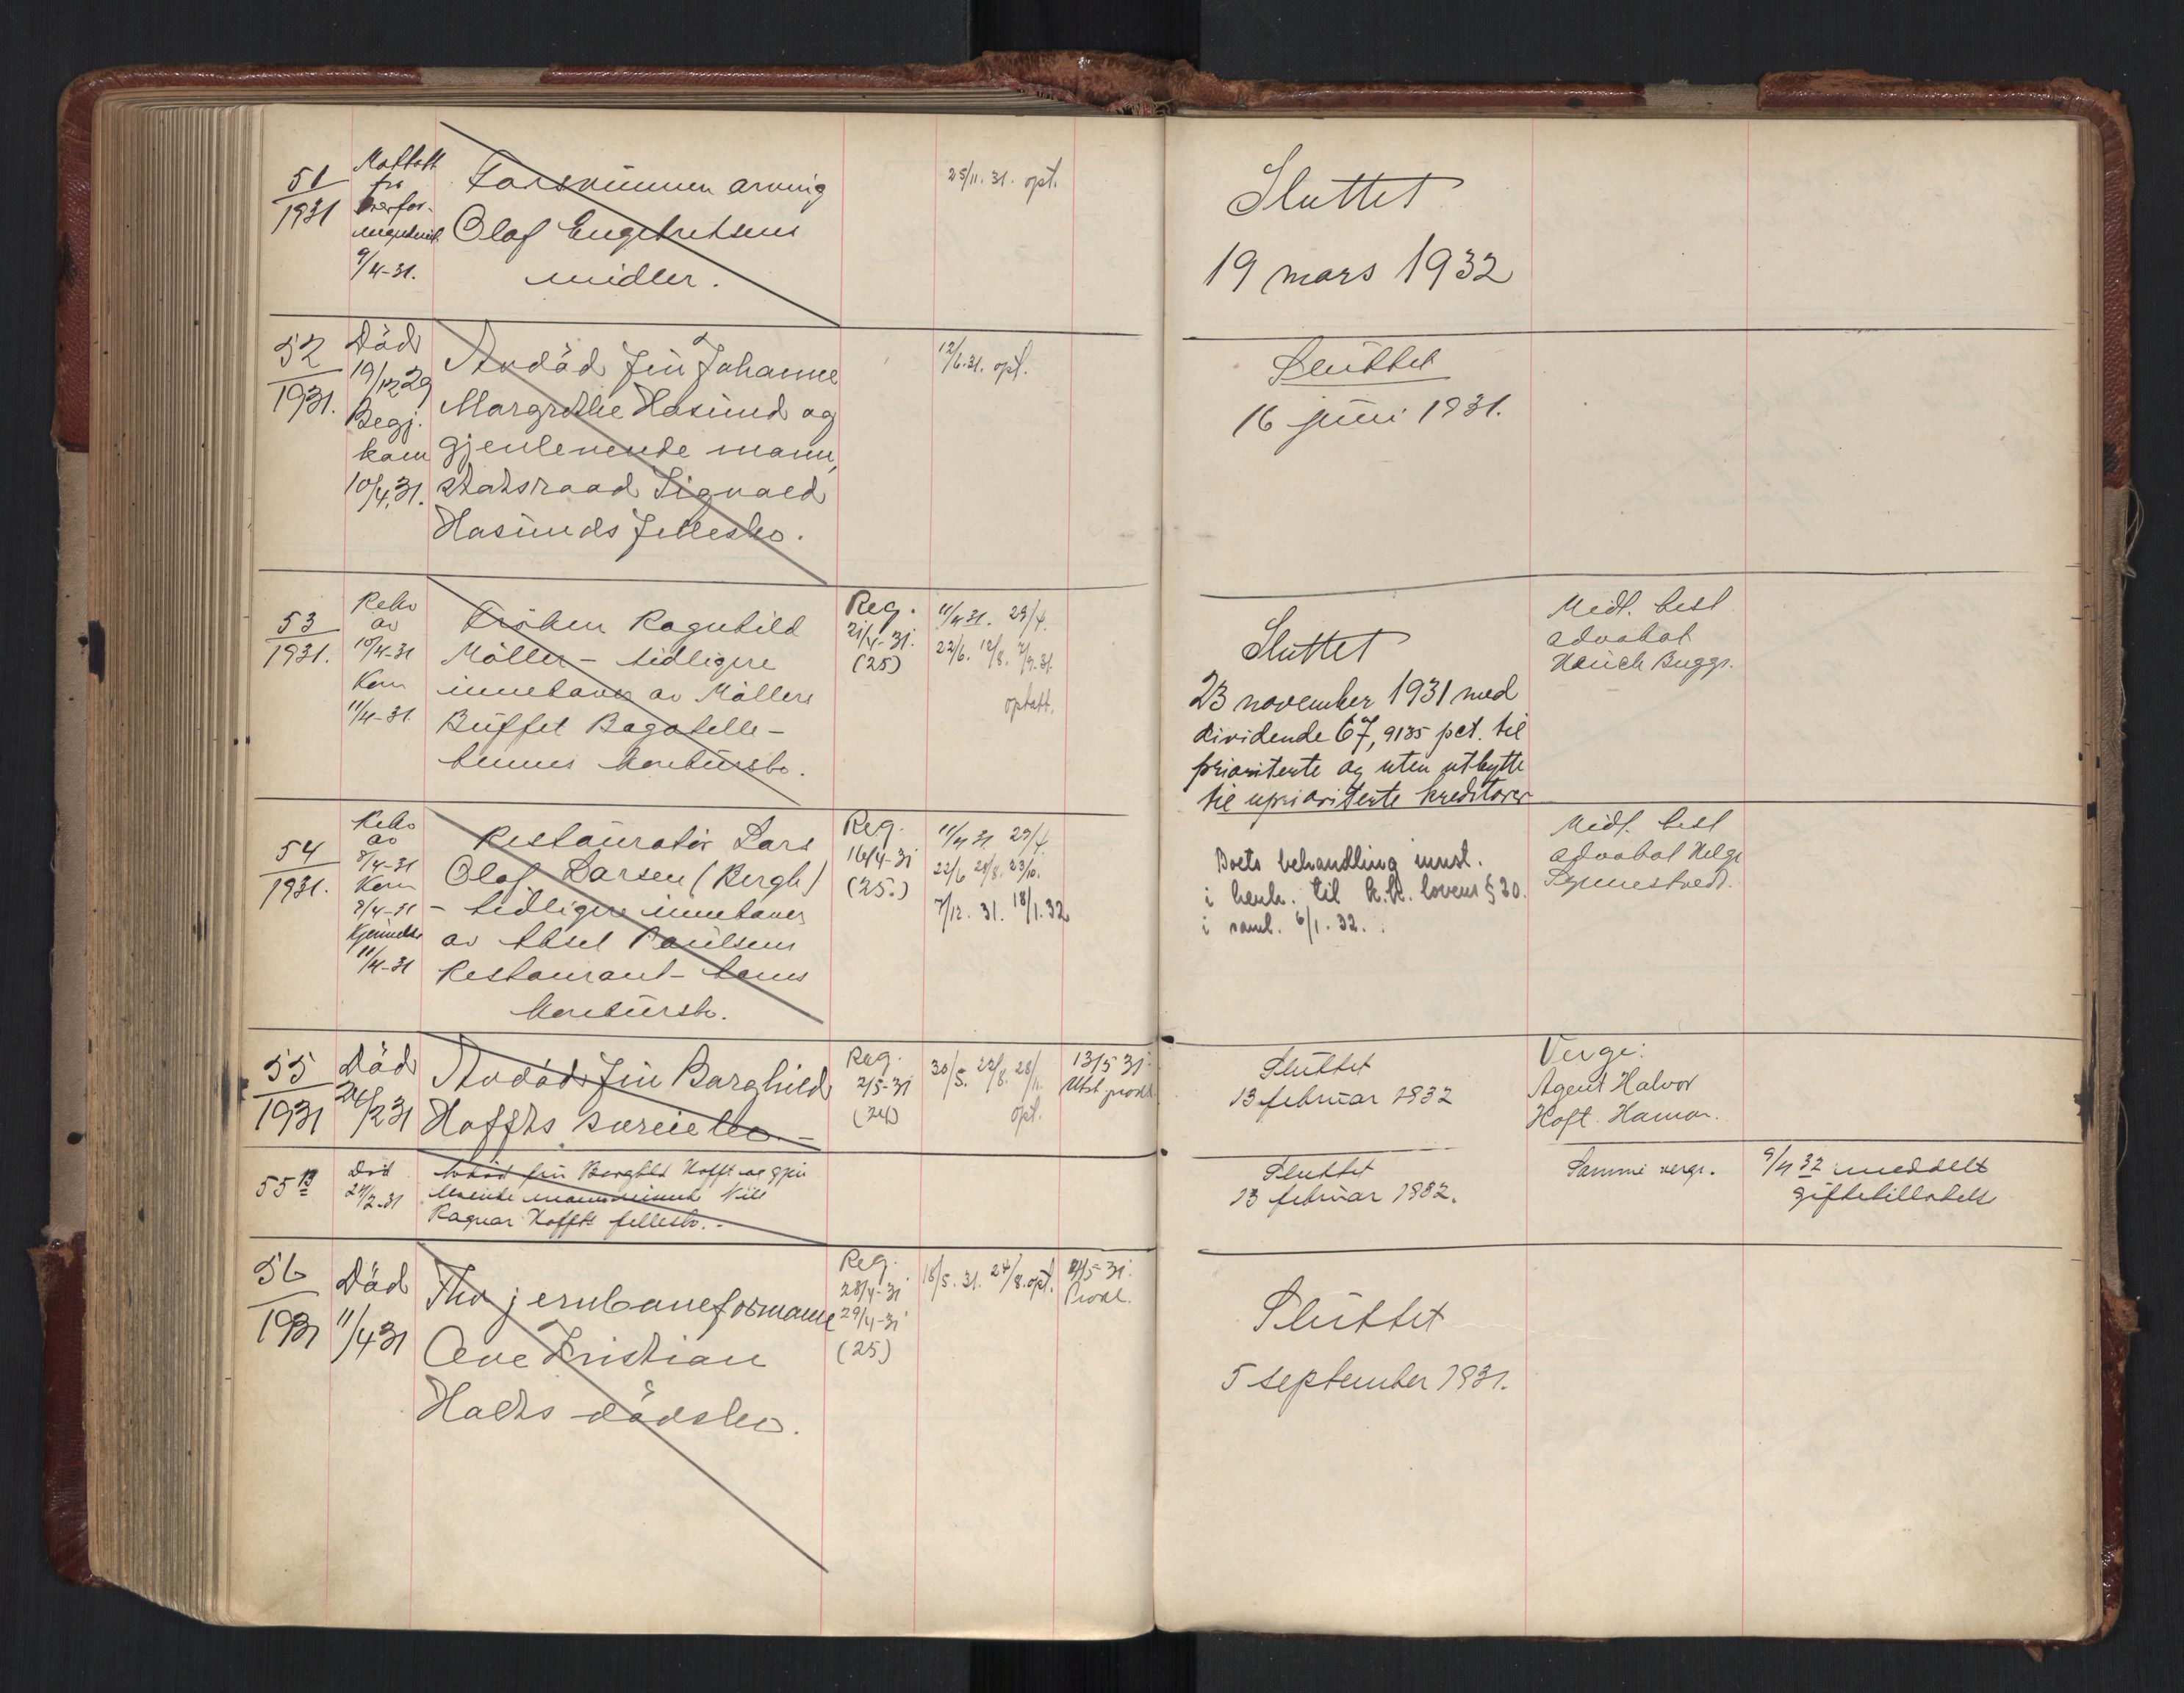 51
1931
Mottatt
fra
overfor-
9/4-31.
Forsvunnen arving
Olaf Engebretsens
midler.
25/11. 31. opt.
Sluttet
19 mars 1932
52
1931.
Död
19/12 29
Begj.
kom
10/4.31.
Avdöd fru Johanne
Margrethe Hasund og
gjenlevende mann,
statsraad Sigvald
Hasunds fellesbo.
12/6.31. opt.
Sluttet
16 juni 1931.
53
1931.
Rekv
av
10/4-31
Kom
11/4-31
Fröken Ragnhild
Möller - tidligere
innehaver av Möllers
Buffet Bagatelle -
hennes konkursbo.
Reg.
21/4-31.
(25)
11/4 31. 29/4.
22/6. 12/8. 7/9.31
optatt.
Sluttet
23 november 1931 med
dividende 67,9135 pct. til
prioriterte og uten utbytte
til uprioriterte kreditorer
Midl. best
advokat
Hauch Bugge.
54
1931.
Rekv
av
8/4-31
Kom
9/4-31
Kjennelse
11/4-31
Restauratör Lars
Olaf Larsen (Bergh)
- tidligere innehaver
av Aksel Paulsens
Restaurant - hans
konkursbo.
Reg.
16/4-31
(25.)
11/4 31 29/4.
22/6 28/8. 23/10.
7/12. 31. 18/1.32
Boets behandling innst.
i henh. til k.k. lovens § 20.
i saml. 6/1. 32.
Midl. best
advokat Helge
Synnestvedt.
55
1931
Död
24/2 31
Avdöd fru Borghild
Hoffts særeiebo. -
Reg.
2/5-31
(24)
30/5. 22/8. 28/11.
opt.
13/5 31.
Utst. prokl.
Sluttet
13 februar 1932
Verge:
Agent Halvor
Hoft. Hamar.
55 B
Död
24/2-31
Avdöd fru Borghild Hofft og gjen
levende mann
Ragnar Hoffts fellesbo. -
Sluttet
13 februar 1932.
Samme verge.
9/4 32 meddelt
giftetillatelse
56
1931
Död
11/4 31
Fhv jernbaneformann
Ove Kristian
Holts dödsbo.
Reg.
28/4-31
29/4-31
(25)
18/5. 31. 24/8. opt.
Prokl.
Sluttet
5 september 1931.